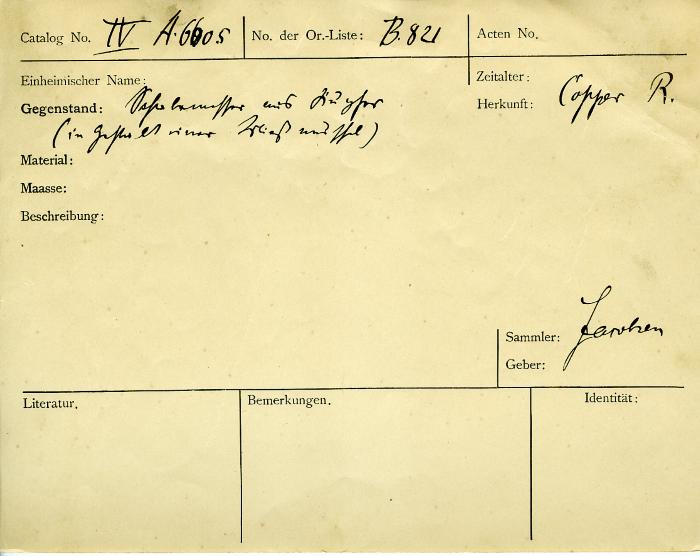 Catalog No. IV A.6605 No. der Or.-Liste: B.821 Acten No.
Einheimischer Name:
Zeitalter:
Gegenstand: Schabemesser aus Kupfer
Herkunft: Copper R.
(in Gestalt einer Mießmuschel)
Material:
Maasse:
Beschreibung:
Sammler: Jacobsen
Geber:
Literatur.
Bemerkungen.
Identität: